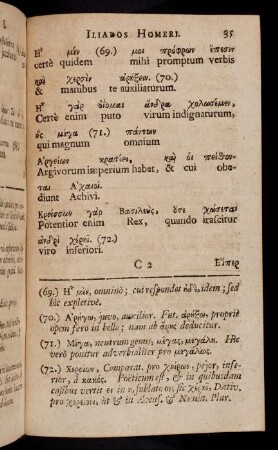 ILIADOS HOMERI. 35
Ἦ μὲν (69.) μοι πρόφρων ἔπεσιν
certè quidem mihi promptum verbis
καὶ χερσὶν ἀρήξειν. (70.)
& manibus te auxiliaturum.
Ἦ γὰρ ὀΐομαι ἄνδρα χολωσέμεν,
Certè enim puto virum indignaturum,
ὃς μέγα (71.) πάντων
qui magnum omnium
Ἀργείων κρατέει, καὶ οἱ πείθον-
Argivorum imperium habet, & cui obe-
ται Ἀχαιοί.
diunt Achivi.
Κρείσσων γὰρ Βασιλεὺς, ὅτε χώσεται
Potentior enim Rex, quando irascitur
ἀνδρὶ χέρηϊ. (72.)
viro inferiori.
C 2 Εἴπερ
(69.) Ἦ μὲν, omninò; cui respondet ἠδὲ, idem; sed
hic expletivè.
(70.) Ἀρήγω, juvo, auxilior. Fut. ἀρήξω, propriè
opem fero in bello; nam ab ἄρης deducitur.
(71.) Μέγα, neutrum genus, μέγας, μεγάλη. Hîc
verò ponitur adverbialiter pro μεγάλως.
(72.) Χερείων, Comparat. pro χείρων, pejor, infe-
rior, à κακός. Poëticum est, & in quibusdam
casibus vertit ει in η, sublato ον, sic χέρηϊ, Dativ.
pro χερείονι, ut & in Accus. & Nomin. Plur.